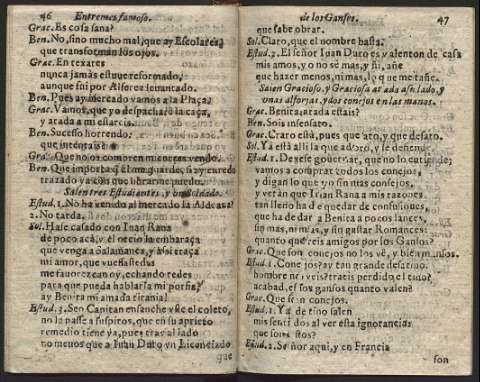 46 Entremes famoso.
Grac. Es cosa sana?
Ben. No, sino mucho mal, que ay Escolares
que transforman los ojos.
Grac. En texares
nunca jamàs estuue reformado,
aunque fui por Alferez leuantado.
Ben. Pues ay mercado vamos a la Plaça.
Grac. Vamos, que yo despacharè la caça,
y atada a mi estaràs.
Ben. Sucesso horrendo:
que intentas?
Grac. Que no os compren mientras vendo.
Ben. Que importarà el me guardes, si ay enredo
trazado ya con que librarme puedo.
Salen tres Estudiantes, y Soldado.
Estud. 1. No ha venido al mercado la Aldeana?
2. No tarda.
Sol. Hase casado con Iuan Rana
de poco acà, y el necio la embaraça
que venga a Salamanca, y traça
mi amor, que vuestedes
me fauorezcan oy, echando redes
para que pueda hablarla mi porfia,
ay Benita mi amada tirania!
Estud. 3. Seo Capitan ensanche vste el coleto,
no le passe a suspiros, que en su aprieto
remedio tiene ya, pues tras al lado
no menos que a Iuan Duro vn Licenciado
que
de los Gansos. 47
que sabe obrar.
Sol. Claro, que el nombre basta.
Estud. 2. El señor Iuan Duro es valenton de casa
mis amos, y o no sè mas, y ñi, añe
que hazer menos, ni mas, lo que me tañe.
Salen Gracioso, y Graciosa atada a su lado, y
vnas alforjas, y dos conejos en las manos.
Grac. Benita, atada estais?
Ben. Sois insensato.
Grac. Claro està, pues que ato, y que desato.
Sol. Ya està alli la que adoro, y se desiende.
Estud. 1. Dexese gouernar, que no lo entiende;
vamos a comprar todos los conejos,
y digan lo que yo sin mas consejos,
y veràn que Iuan Rana a mis razones
tan lleno ha de quedar de confusiones,
que ha de dar a Benita a pocos lances,
sin mas, ni mas, y sin gastar Romances:
quanto quereis amigos por los Gansos?
Grac. Que son conejos no los vè, y bien mansos.
Estud. 1. Conejos? ay tan grande desatino.
hombre no veis? traeis perdido el tino?
acabad, essos gansos quanto valen?
Grac. Que son conejos.
Estud. 1. Ya de tino salen
mis sentidos al ver esta ignorancia:
que son estos?
Estud. 2. Señor aqui, y en Francia
son